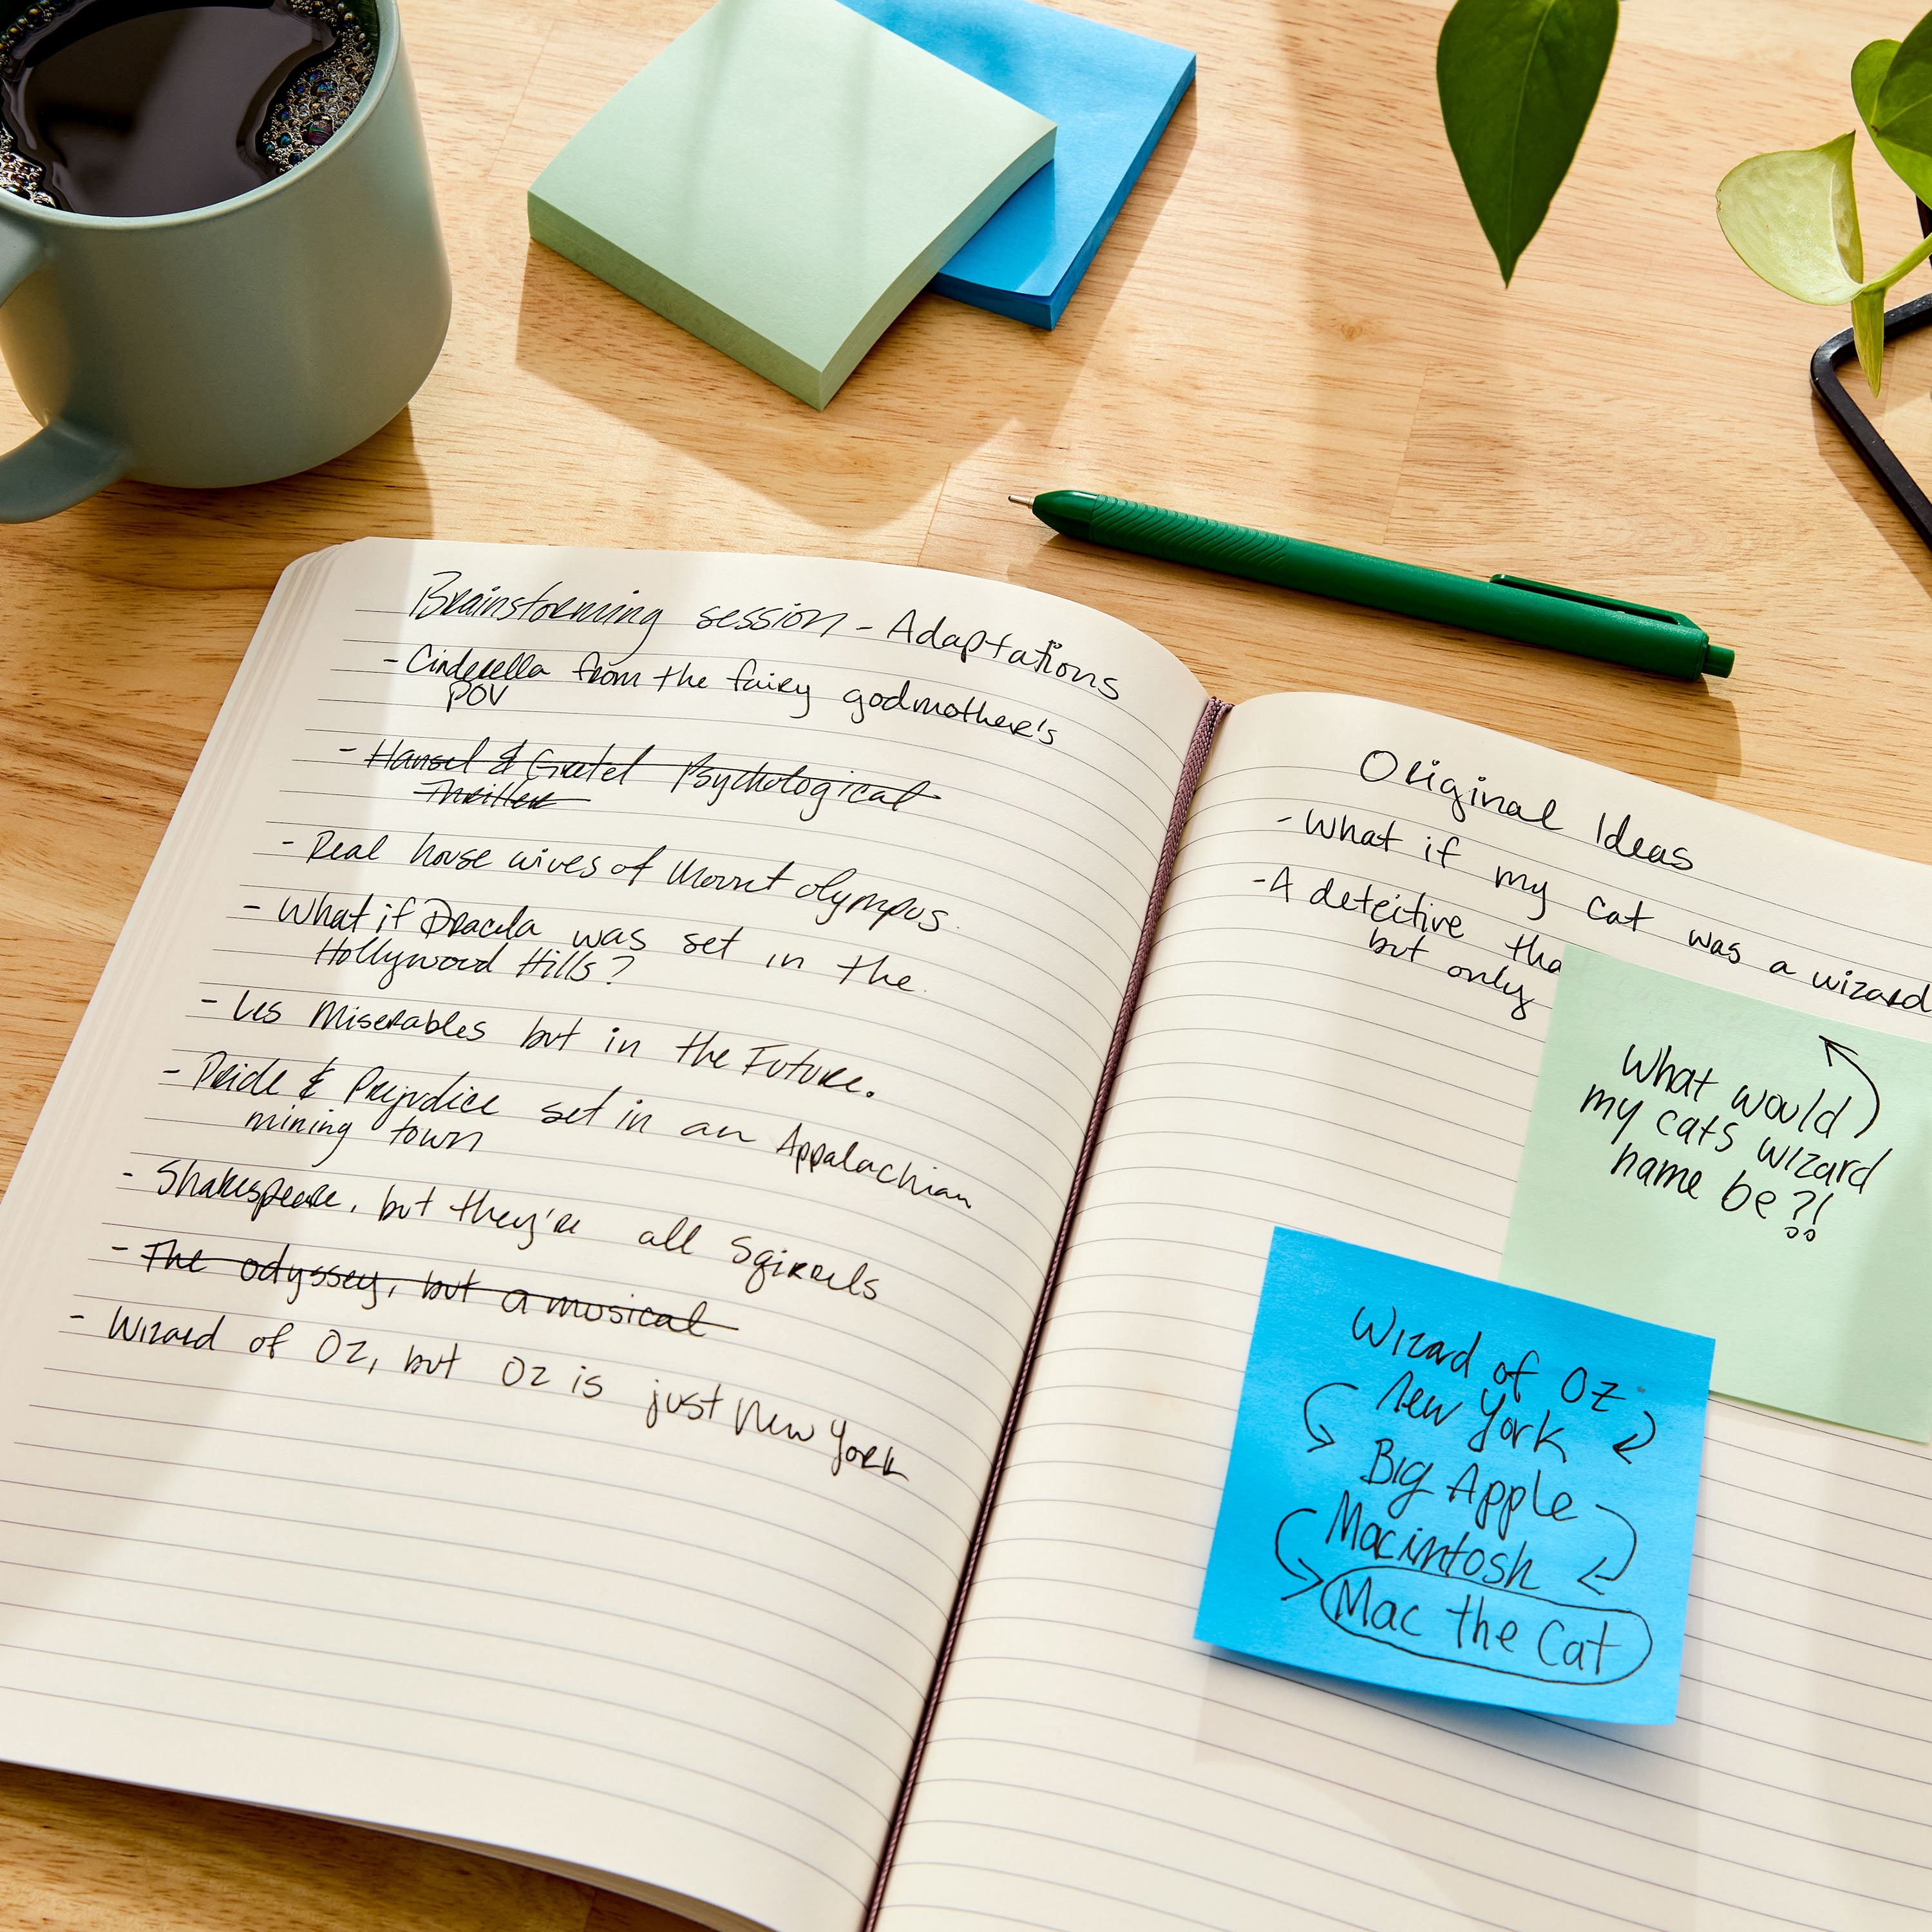 Brainstorming session - Adaptations
- Cinderella from the fairy godmother's
POV
- Hansel & Gretel Psychological
Thriller
- Real house wives of Mount Olympus.
- What if Dracula was set in the
Hollywood Hills?
- Les Miserables but in the Future.
- Pride & Prejudice set in an Appalachian
mining town
- Shakespeare, but they're all Sqirrels
- The odyssey, but a musical
- Wizard of Oz, but Oz is just New York
Original Ideas
- What if my cat was a wizard
- A detective tha
but only
What would
my cats wizard
name be?!
Wizard of Oz
New York
Big Apple
Macintosh
Mac the Cat